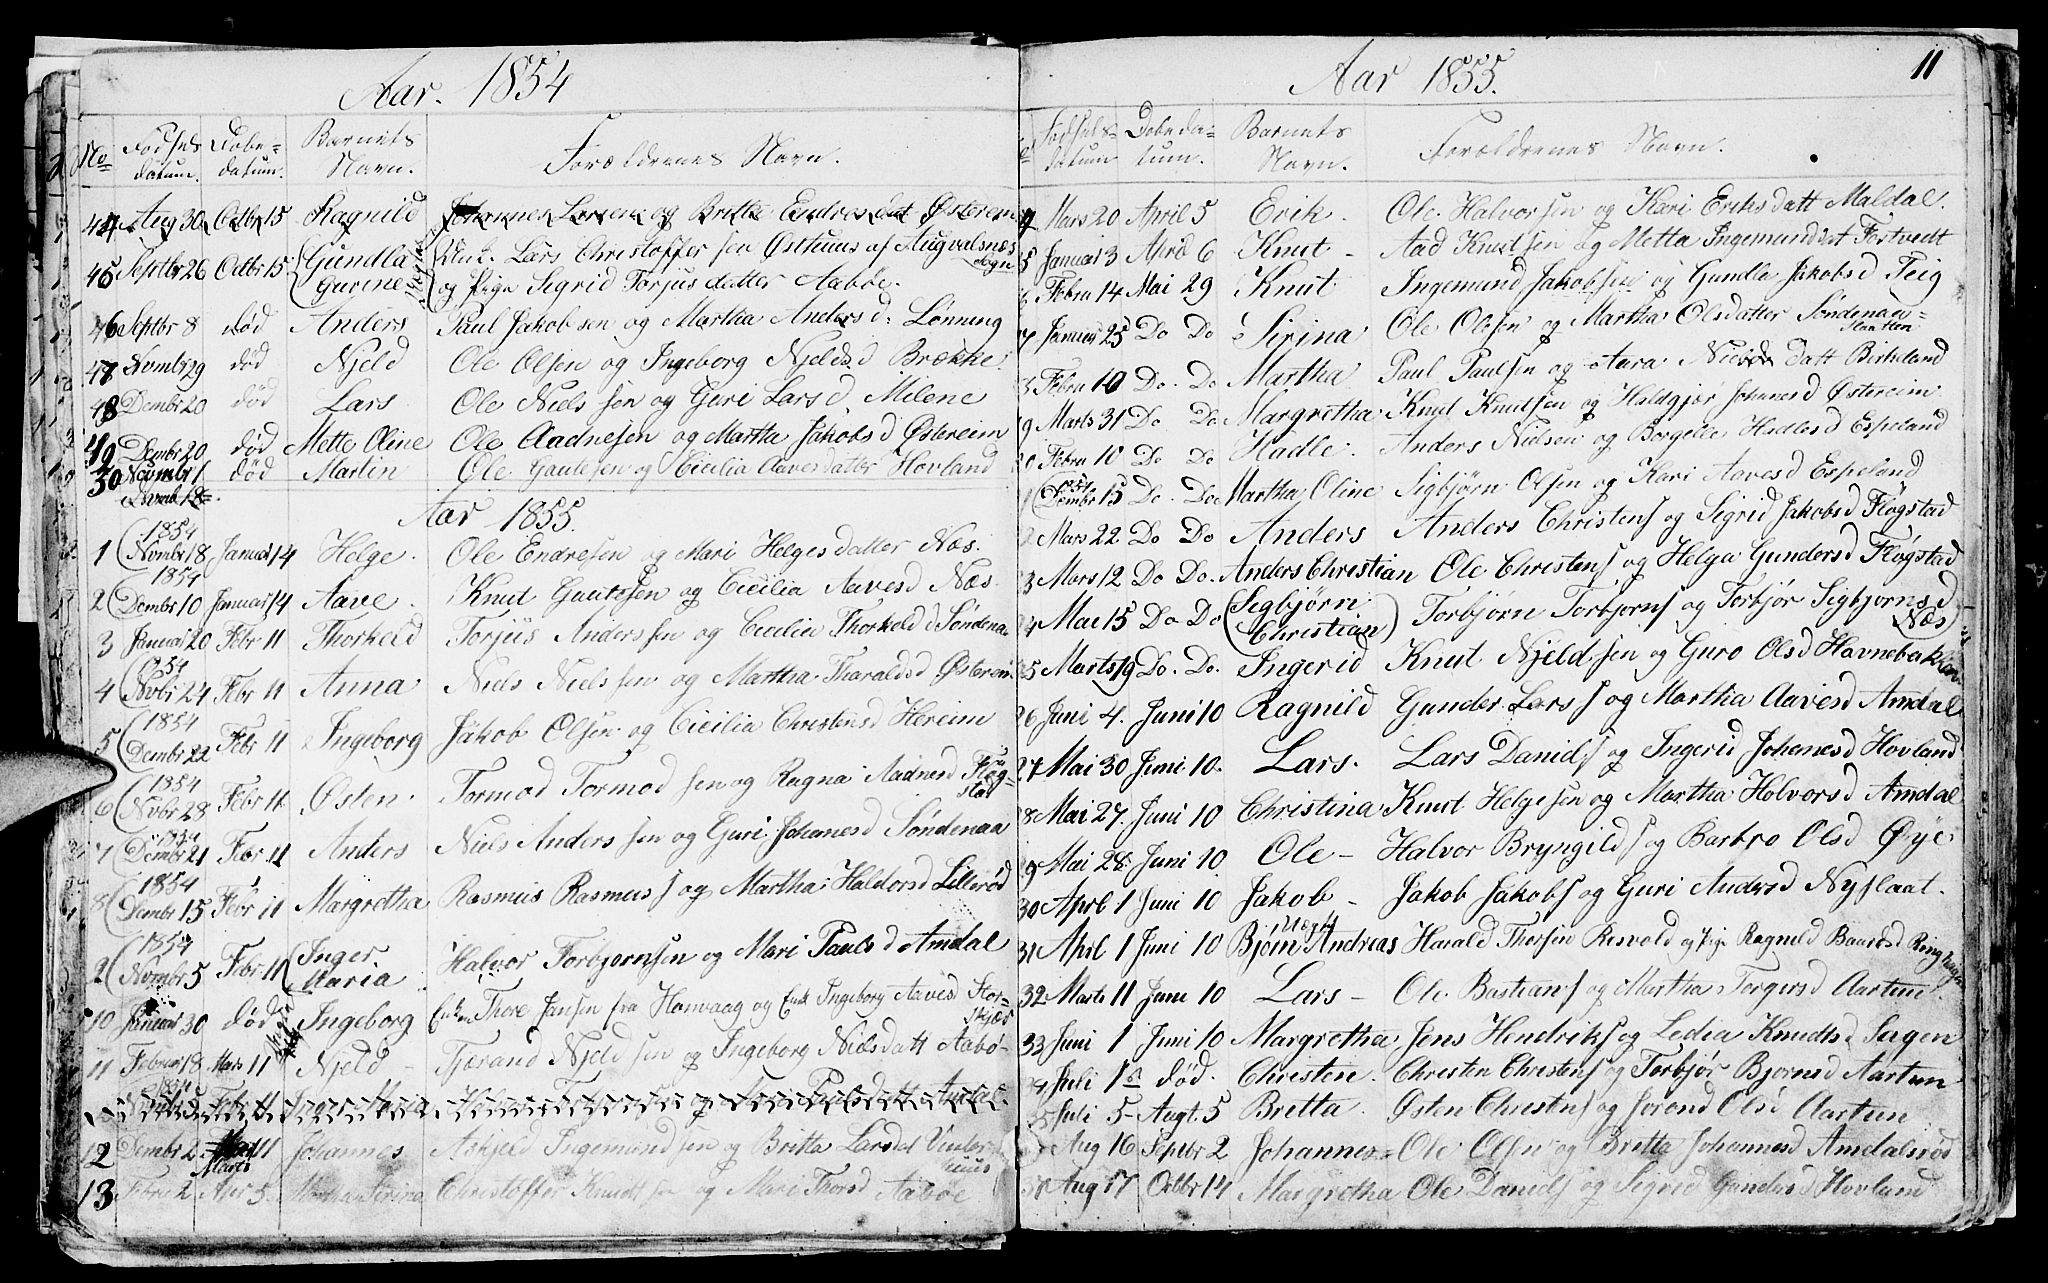 Aar. 1854
No Fødsels datum. Døbe- datum. Barnets Navn. Forældrenes Navn.
44 Aug 30 Octbr 15 Ragnild Johannes Larsen og Britta Endresdat Østerem
45 Septbr 26 Octbr 15 Gundla Gurine Enk. Lars Christoffersen Østhuus af Augvalsnæs Sogn
og Pige Sigrid Torjusdatter Aabøe.
46 Septbr 8 død Anders Paul Jakobsen og Martha Andersd: Lønning
47 Novmbr 29 død Njeld Ole Olsen og Ingeborg Njeldsd Brække.
48 Dembr 20 død Lars Ole Nielssen og Guri Larsd Milene
49 Dembr 20 død Mette Oline Ole Aadnesen og Martha Jakobsd Østereim
50 Novmbr 1 død Martin Ole Gautesen og Cicilia Aavesdatter Hovland
Aar 1855.
1 (1854 Novmbr 18 Januar 14 Helge. Ole Endresen og Mari Helgesdatter Næs.
2 (1854 Dembr 10 Januar 14 Aave. Knut Gautesen og Cicilia Aavesd Næs.
3 Januar 20 Febr 11 Thorkeld Torjus Anderssen og Cicilia Thorkeldsd Søndena
4 (1854 Nvbr 24 Febr 11 Anna Niels Nielssen og Martha Tharaldsd Østerem
5 (1854 Dembr 22 Febr 11 Ingeborg Jakob Olsen og Cicilia Christensd Hereim
6 (1854 Nvbr 28 Febr 11 Østen. Tormod Tormodsen og Ragna Aadnesd Fløgstad
7 (1854 Dembr 21 Febr 11 Anders Niels Anderssen og Guri Johanesd Søndenaa
8 (1854 Dembr 15 Febr 11 Margretha Rasmus Rasmuss og Martha Haldorsd Lillerød
2 (1854 Novmbr 5 Febr 11 Inger Maria Halvor Torbjornsen og Mari Paulsd Amdal
10 Januar 30 død Ingeborg Enkm Thore Jansen fra Honvaag og Enk Ingeborg Aavesd
11 Februar 18 Mars 11 Njeld – Tjerand Njeldsen og Ingeborg Nielsdatt Aabø-
12 Dembr 2 Marts 11 Johannes Askjeld Ingemundsen og Britta Larsd
13 Febru 2 Apr 5. Martha Serina Christoffer Knudtsen og Mari Thorsd Aabøe
Aar 1855. 11
Fødsels- datum Døbeda- tum. Barnets Navn. Forældrenes Navn.
Mars 20 April 5 Erik. Ole Halvorsen og Kari Eriksdatt Maldal.
5 Januar 3 April 6 Knut – Aad Knutsen og Metta Ingemunddat Tortvedt
Febru 14 Mai 29 Knut Ingemund Jakobsen og Gundla Jakobsd Teig
7 Januar 25 Do Do Serina Ole Olesen og Martha Olsdatter Søndenaa-
slaatten
Febru 10 Do. Do Martha Paul Paulsen og Aara Nielsdatt Birkeland
9 Marts 31 Do Do Margretha Knut Knutsen og Haldgjør Johanesd Østereim
20 Febru 10 Do Do Hadle. Anders Nielsen og Borgelle Hadlesd Espeland
1 (1854. Dembr 15 Do. Do Martha Oline Sigbjørn Olsen og Kari Aavesd Espeland
2 Mars 22 Do Do Anders Anders Christens og Sigrid Jakobsd Fløgstad
3 Mars 12 Do Do. Anders Christian Ole Christens og Helga Gundersd Fløgstad
24 Mai 15 Do Do (Segbjørn Christian) Torbjørn Torbjorns og Torbjør Segbjornsd Næs
25 Marts 19 Do. Do. Ingerid Knut Njeldsen og Guro Olsd Havnebakken
26 Juni 4. Juni 10 Ragnild Gunder Larss og Martha Aavesd Amdal
27 Mai 30 Juni 10. Lars. Lars Daniels og Ingerid Johanesd Hovland
8 Mai 27. Juni 10 Christina Knut Helgesen og Martha Holvorsd Amdal
29 Mai 28. Juni 10 Ole – Halvor Bryngilds og Barbro Olsd Øye
30 Aprl 1 Juni 10 Jakob – Jakob Jakobs og Guri Andersd Nyslaat.
31 Aprl 1 Juni 10 Bjørn Andreas Uægt Harald Thorsen Risvold og Pige Ragnild Baardsd Ringhaugen
32. Marts 11 Juni 10 Lars – Ole Bastians og Martha Torgersd Aartun
33 Juni 1 Juni 10 Margretha Jens Hendriks og Ledia Knudtsd Sagen
34 Juli 1 død. Christen. Christen Christens og Torbjør Bjornsd Aartun
35 Juli 5 – Augt. 5 Bretta. Østen Christens og Jorand Olsd Aartun
Aug 16 Septbr 2 Johannes – Ole Olsen og Bretta Johannesd Amdalsrød
37 Aug 17 Octbr 14 Margretha Ole Daniels og Sigrid Gundersd Hovland